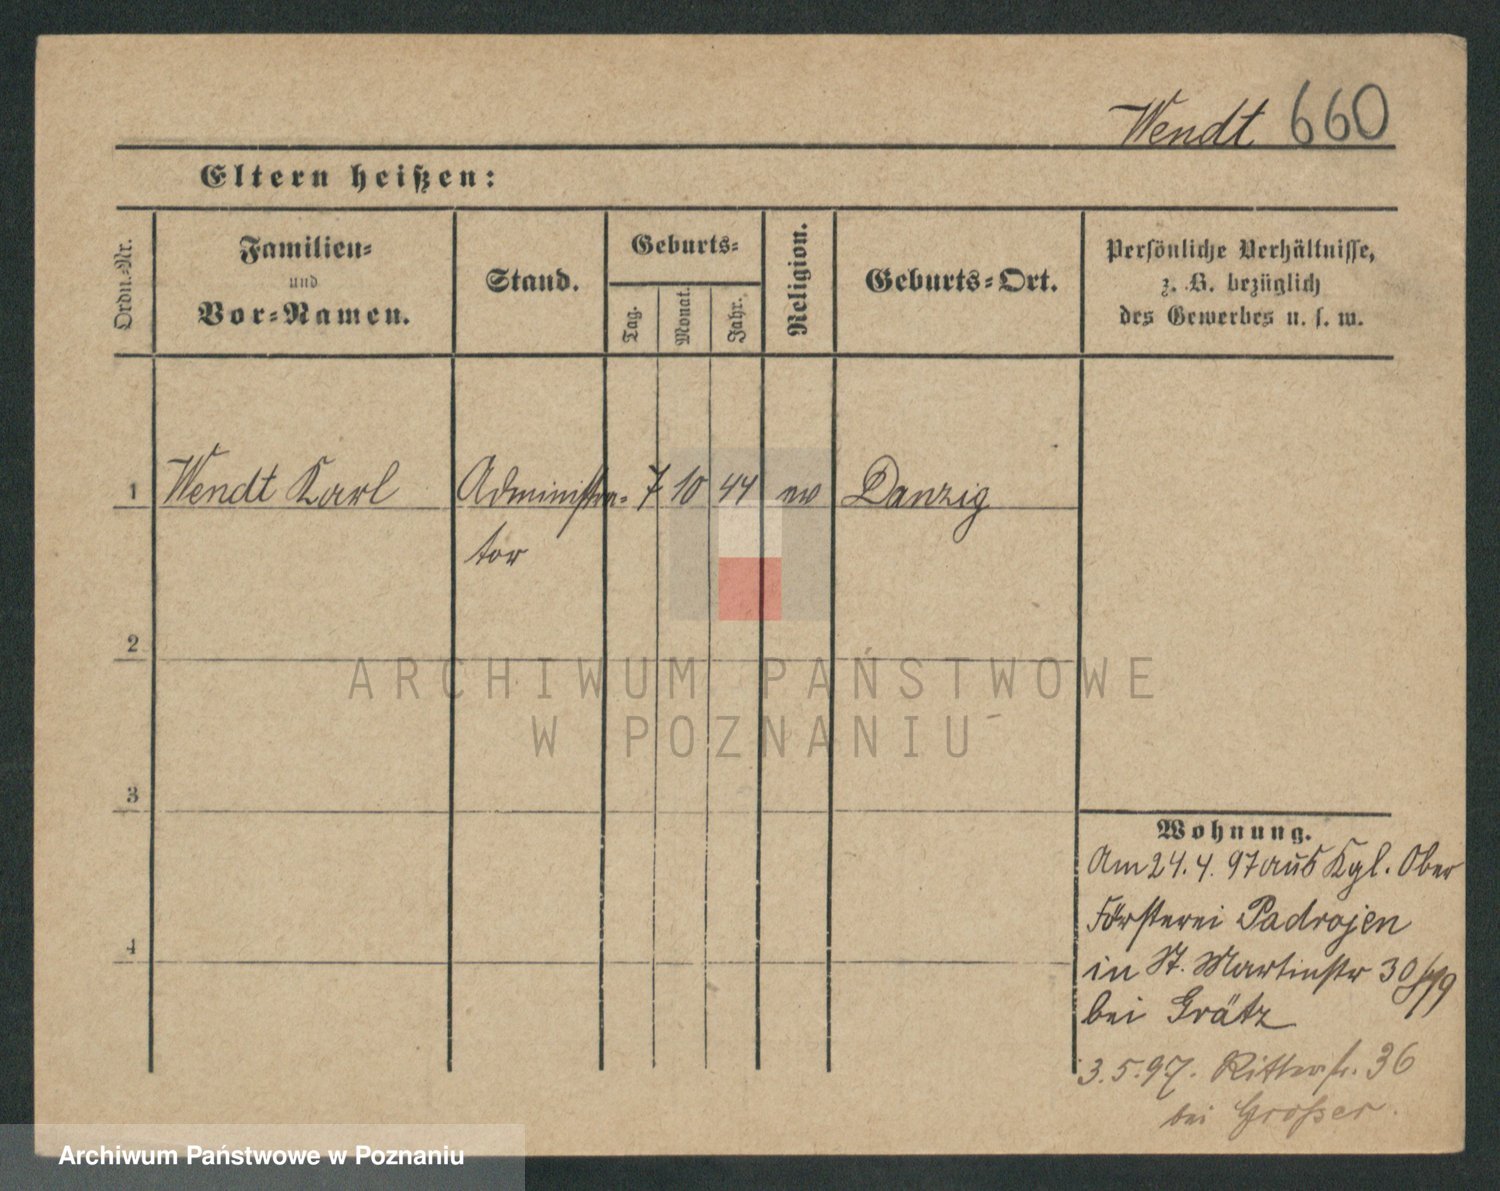 Wendt 660
Eltern heißen:
Ordn.-Nr.
Familien-
und
Vor-Namen.
Stand.
Geburts-
Tag.
Monat.
Jahr.
Religion.
Geburts-Ort.
Persönliche Verhältnisse,
z. B. bezüglich
des Gewerbes u. s. w.
1 Wendt Karl Administra- 7 10 44 ev Danzig
tor
2
ARCHIWUM PAŃSTWOWE
W POZNANIU
3
4
Wohnung.
Am 24.4.97 aus Kgl. Ober
Försterei Padrojen
in St. Martinstr 30
bei Grätz
3.5.97. Ritterstr. 36
bei Großer.
Archiwum Państwowe w Poznaniu